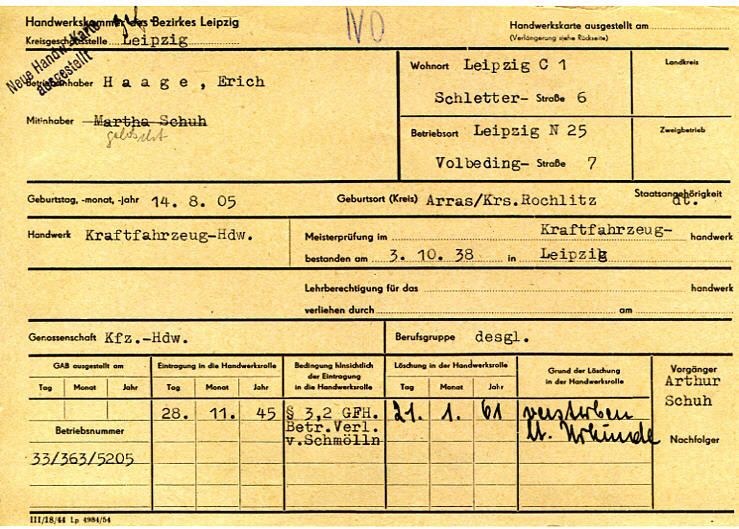 Handwerkskammer des Bezirkes Leipzig
Kreisgeschäftsstelle Leipzig
NO
Handwerkskarte ausgestellt am
(Verlängerung siehe Rückseite)
Neue Handw.-Karte
ausgestellt
Betriebsinhaber Haage, Erich
Mitinhaber Martha Schuh
gelöscht
Wohnort Leipzig C 1
Schletter- Straße 6
Landkreis
Betriebsort Leipzig N 25
Volbeding- Straße 7
Zweigbetrieb
Geburtstag, -monat, -jahr 14. 8. 05
Geburtsort (Kreis) Arras/Krs.Rochlitz
Staatsangehörigkeit
dt.
Handwerk Kraftfahrzeug-Hdw.
Meisterprüfung im Kraftfahrzeug- handwerk
bestanden am 3. 10. 38 in Leipzig
Lehrberechtigung für das handwerk
verliehen durch am
Genossenschaft Kfz.-Hdw.
Berufsgruppe desgl.
GAB ausgestellt am
Tag Monat Jahr
Eintragung in die Handwerksrolle
Tag Monat Jahr
28. 11. 45
Bedingung hinsichtlich
der Eintragung
in die Handwerksrolle
§ 3,2 GFH.
Betr.Verl.
v.Schmölln
Löschung in der Handwerksrolle
Tag Monat Jahr
21. 1. 61
Grund der Löschung
in der Handwerksrolle
verstorben
lt. Urkunde
Vorgänger
Arthur
Schuh
Nachfolger
Betriebsnummer
33/363/5205
III/18/44 Lp 4984/54